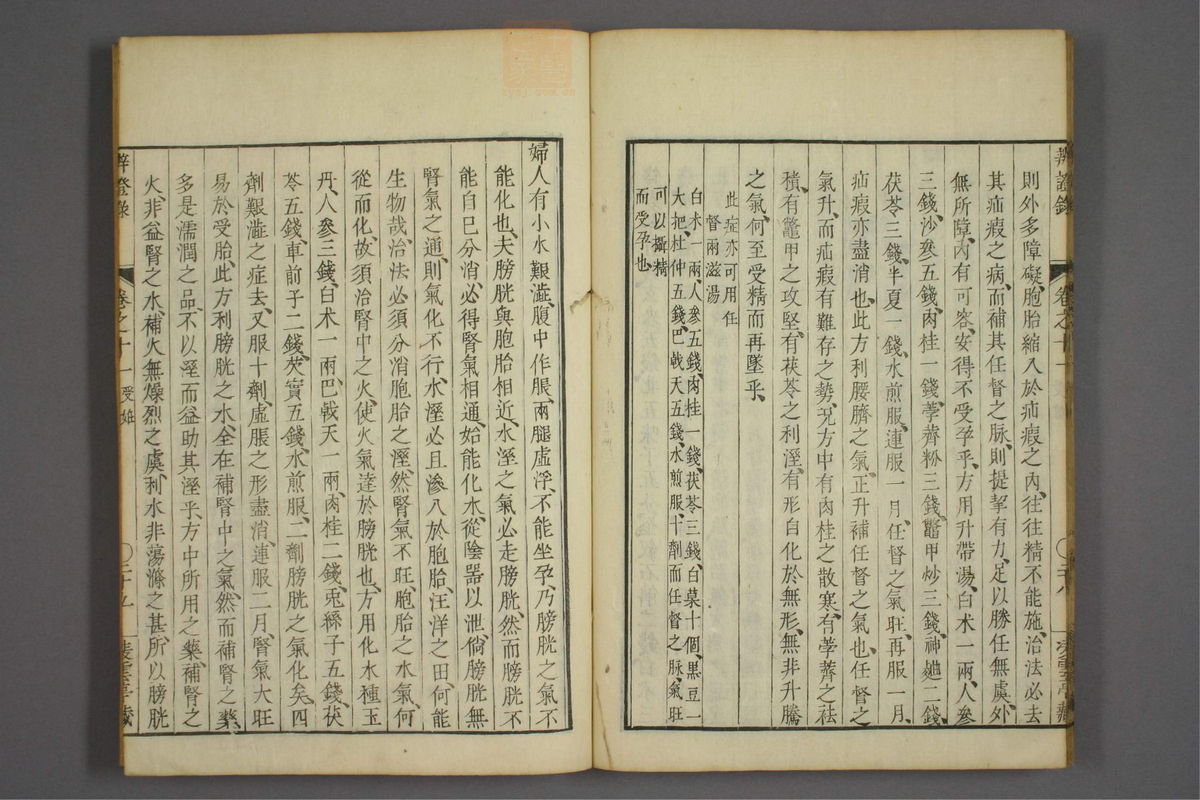 則外多障礙胞胎縮入於疝瘕之內往往精不能施治法必去
其疝瘕之病而補其任督之脉則提挈有力足以勝任無虞外
無所障內有可容安得不受孕乎方用升帶湯白术一兩人參
三錢沙參五錢肉桂一錢荸薺粉三錢鼈甲炒三錢神麯二錢
茯苓三錢半夏一錢水煎服連服一月任督之氣旺再服一月
疝瘕亦盡消也此方利腰臍之氣正升補任督之氣也任督之
氣升而疝瘕有難存之勢况方中有肉桂之散寒有荸薺之袪
積有鼈甲之攻堅有茯苓之利溼有形自化於無形無非升騰
之氣何至受精而再墜乎
此症亦可用任
督兩滋湯
白术一兩人參五錢肉桂一錢茯苓三錢白菓十個黑豆一
大把杜仲五錢巴戟天五錢水煎服十劑而任督之脉氣旺
可以攝精
而受孕也
辨證錄
卷之十一
二十八
凌雲亭藏
婦人有小水艱澁腹中作脹兩腿虛浮不能坐孕乃膀胱之氣不
能化也夫膀胱與胞胎相近水溼之氣必走膀胱然而膀胱不
能自巳分消必得腎氣相通始能化水從陰器以泄倘膀胱無
腎氣之通則氣化不行水溼必且滲入於胞胎汪洋之田何能
生物哉治法必須分消胞胎之溼然腎氣不旺胞胎之水氣何
從而化故須治腎中之火使火氣達於膀胱也方用化水種玉
丹人參三錢白术一兩巴戟天一兩肉桂二錢兎絲子五錢茯
苓五錢車前子二錢芡實五錢水煎服二劑膀胱之氣化矣四
劑艱澁之症去又服十劑虛脹之形盡消連服二月腎氣大旺
易於受胎此方利膀胱之水全在補腎中之氣然而補腎之藥
多是濡潤之品不以溼而益助其溼乎方中所用之藥補腎之
火非益腎之水補火無燥烈之虞利水非蕩滌之甚所以膀胱
辨證錄
卷之十一 受姙
二十九
凌雲亭藏